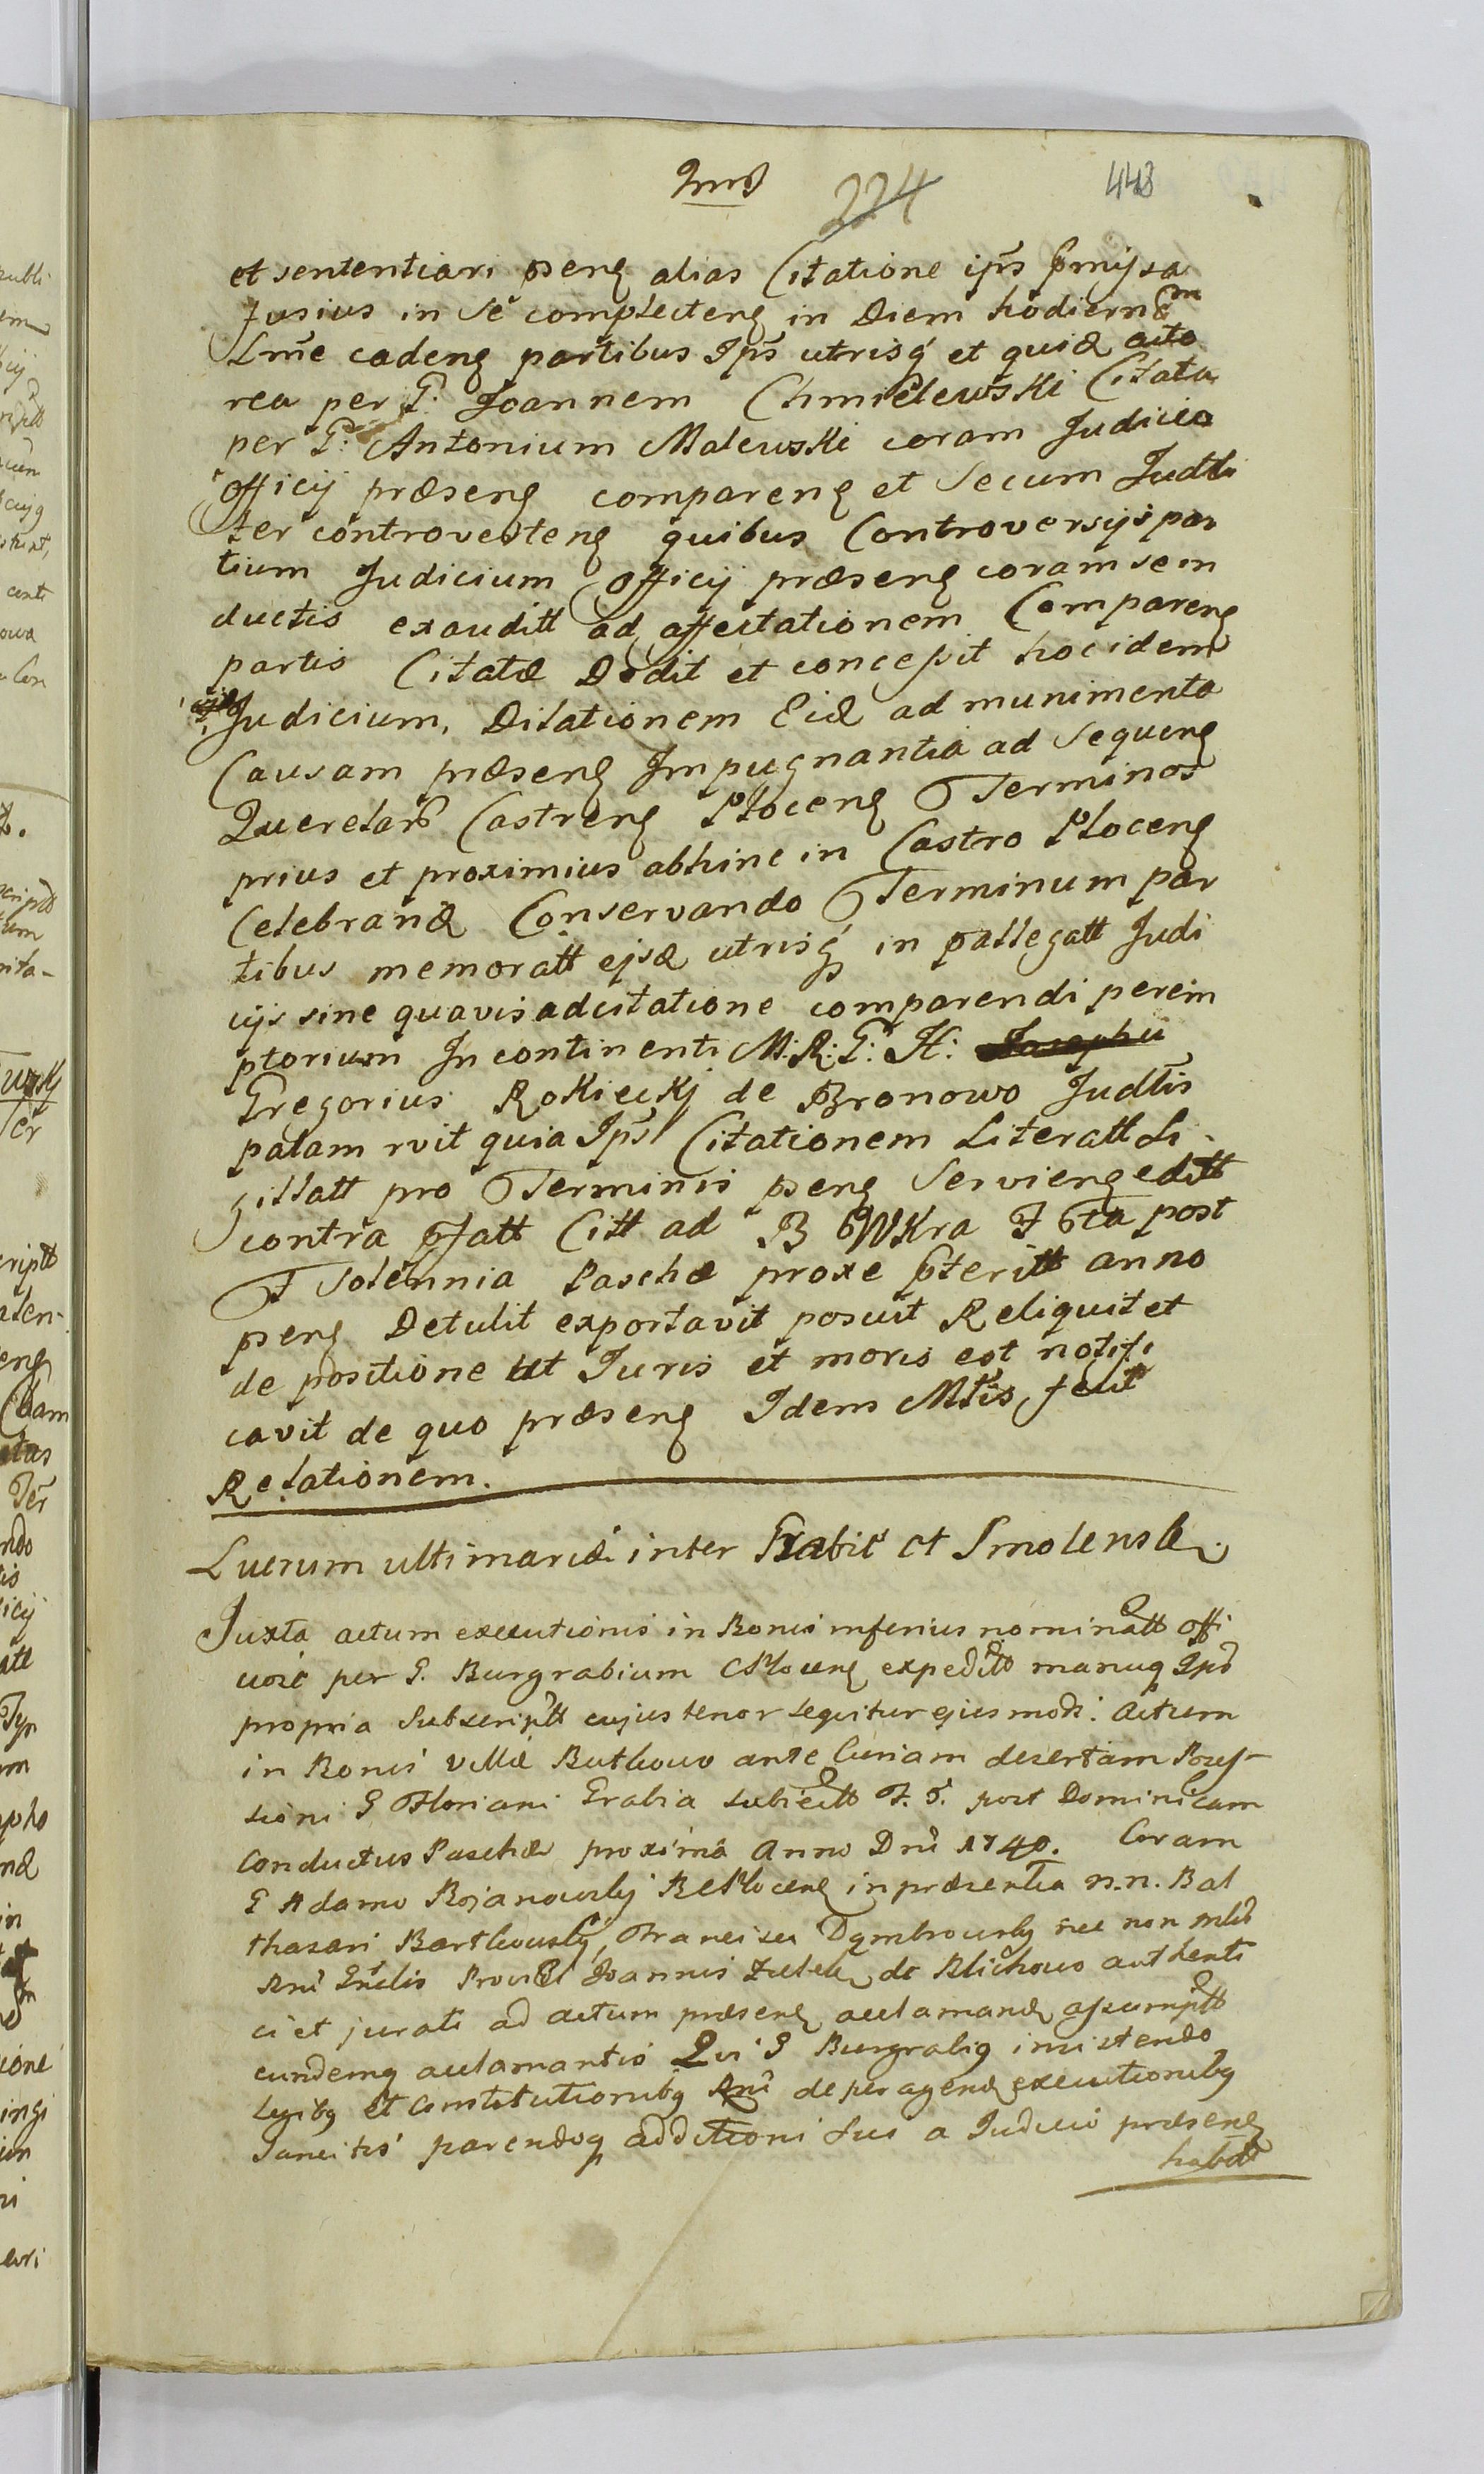 224 443
et sententiari pseng alias Citatione ips pmissa
fusius in Se complecteng in Diem hodiernam
Lme cadeng partibus Ips utrisq et quid acto
rea per G. Joannem Chmielewski Citata
per G. Antonium Malewski coram Judicio
Officij præseng compareng et Secum Judtli
ter controverteng quibus Controversijs par
tium Judicium Officij præseng coram se in
ductis exauditt ad affectationem Compareng
partis Citatæ Dedit et concessit hoc idem
Judicium, Dilationem Eid ad munimenta
Causam præseng Impugnantia ad Sequeng
Querelar Castreng Ploceng Terminos
prius et proximius abhinc in Castro Ploceng
Celebrand Conservando Terminum par
tibus memoratt ejsd utrisq in pallegatt Judi
cijs sine quavis adcitatione comparendi perem
ptorium Incontinenti M. R. G. H. Josephu
Gregorius Rokieckj de Bronowo Judtlis
palam rvit quia Ips Citationem Literatt Si
gillatt pro Terminis pseng Servieng editt
contra pfatt Citt ad B Wkra F 6ta post
F Solennia Paschæ proxe pteritt anno
pseng Detulit exportavit posuit Reliquit et
de positione ut Juris et moris est notifi
cavit de quo præseng Idem Mtis fecit
Relationem.
Lucrum ultimariæ inter Grabie et Smolensk
Juxta actum executionis in Bonis inferius nominatt offi
ciose per G. Burgrabium CPloceng expeditt manuq Ips
propria Subscriptt cujus tenor sequitur ejusmodi: Actum
in Bonis Villæ Butkowo ante Curiam desertam Posses-
sioni G Floriani Grabia subiectt F. 6. post Dominicam
Conductus Paschæ proxima Anno Dni 1740. Coram
G Adamo Bojanowskj BCPloceng in præsentia n.n. Bal
thasari Bartkowskj, Francisci Dąmbrowskj nec non
Rni Gnlis Joannis de Blichowo authenti
ci et jurati ad actum præseng acclamand assumptt
eundemq acclamantis Qui G Burgrabig insistendo
Legibg et Constitutionibg Rni de peragend executionibg
Sancitis parendoq additioni Sui a Judicio præseng
habitt